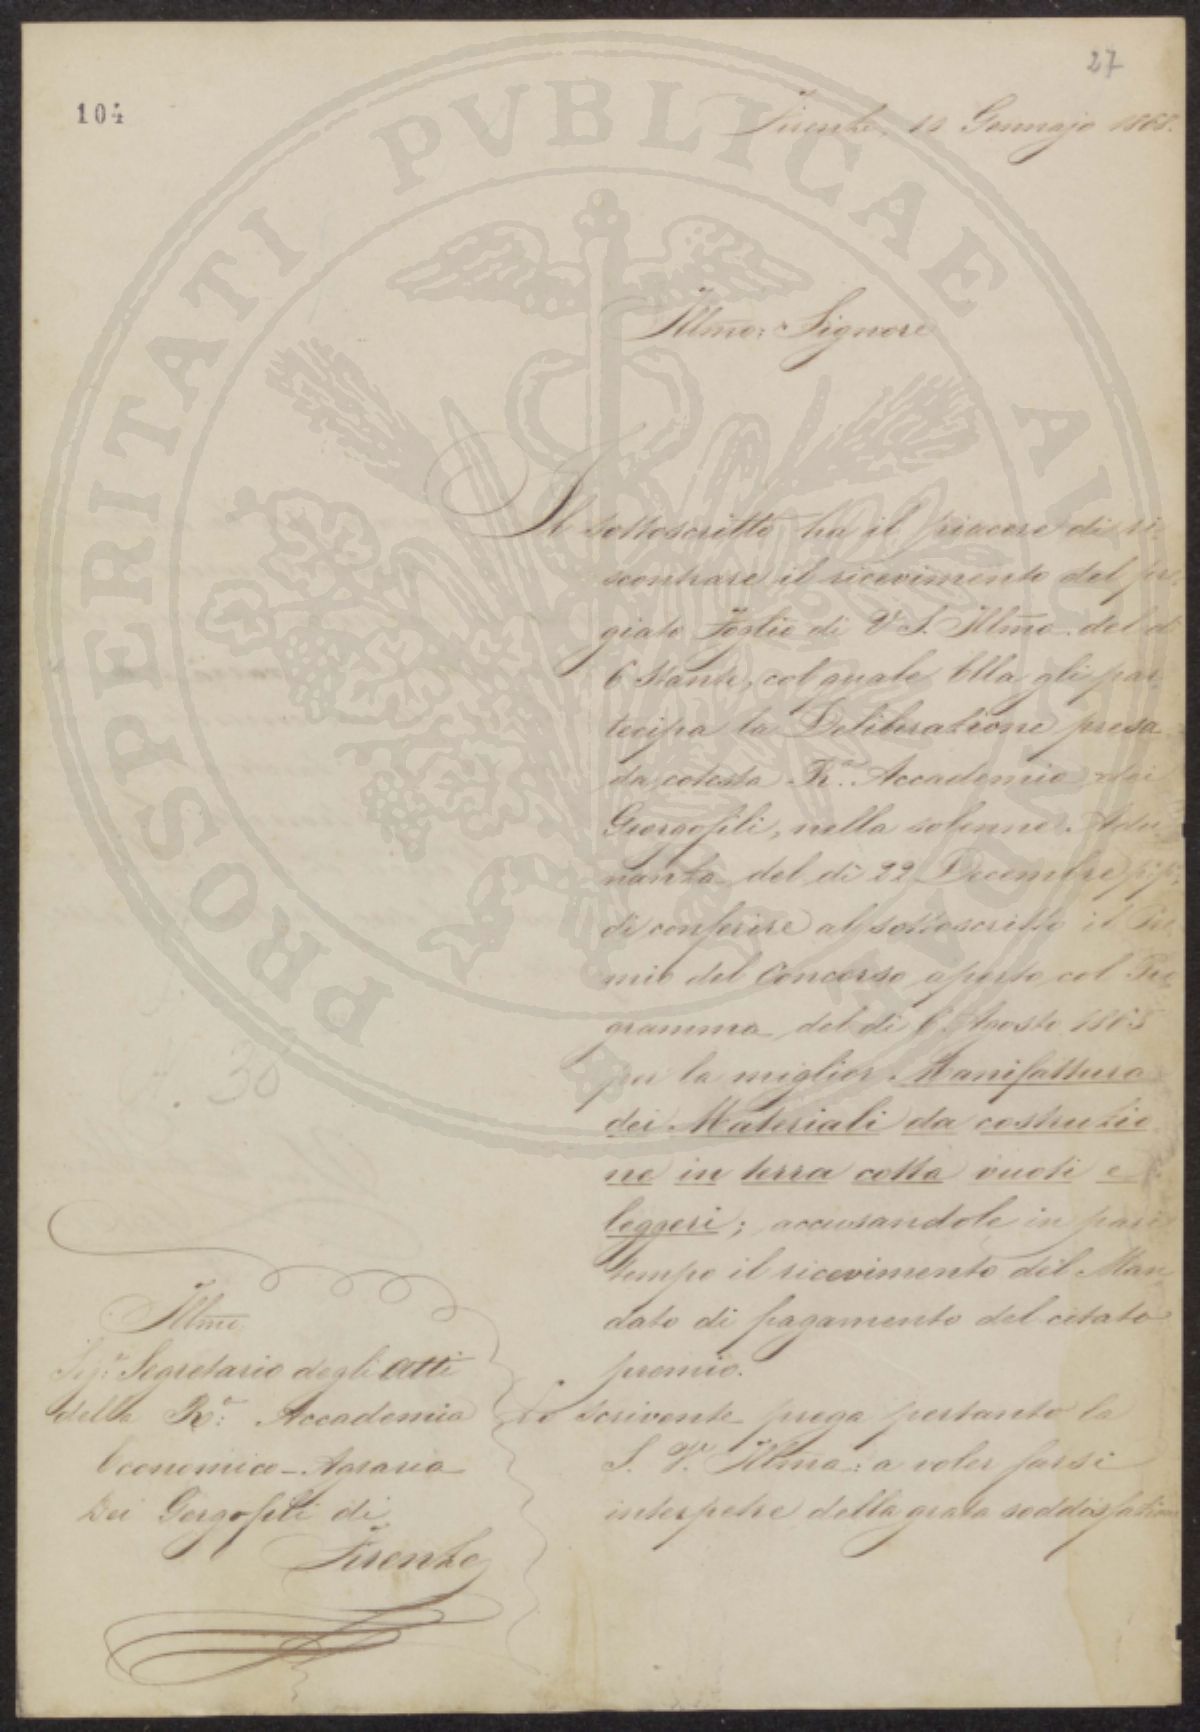 27
104
Firenze, 14 Gennajo 1868.
Illmo: Signore
Il sottoscritto ha il piacere di ri-
scontrare il ricevimento del pre-
giato Foglio di V. S. Illma. del dì
6 Stante, col quale Ella gli par-
tecipa la Deliberazione presa
da cotesta R.a Accademia dei
Georgofili, nella solenne Adu-
nanza del dì 22 Decembre p:p:
di conferire al sottoscritto il Pre-
mio del Concorso aperto col Pro-
gramma del dì 6 Agosto 1865
per la miglior Manifattura
dei Materiali da costruzio-
ne in terra cotta vuoti e
leggeri; accusandole in pari
tempo il ricevimento del Man-
dato di pagamento del citato
premio.
Lo scrivente prega pertanto la
S. V. Illma: a voler farsi
interpetre della grata soddisfazione
Illmo.
Sig:r Segretario degli Atti
della R:a Accademia
Economico-Agraria
dei Gergofili di
Firenze
N. 38
PROSPERITATI PVBLICAE AVGENDAE